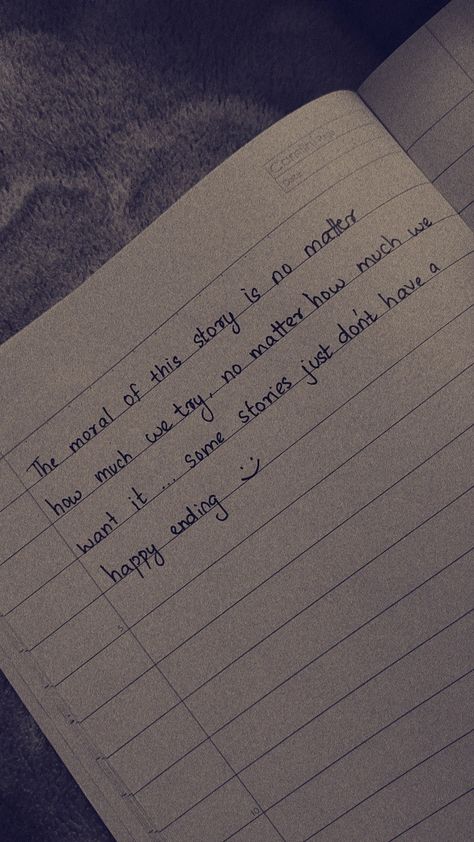 Date:
The moral of this story is no matter
how much we try, no matter how much we
want it ... some stories just don't have a
happy ending :)
5
10